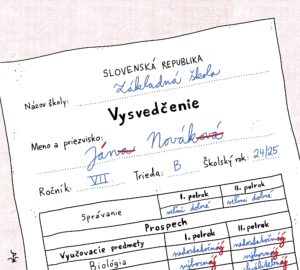 SLOVENSKÁ REPUBLIKA
Názov školy: Základná škola
Vysvedčenie
Meno a priezvisko: Jána Nováková
Ročník: VII Trieda: B Školský rok: 24/25
I. polrok II. polrok
Správanie veľmi dobré veľmi dobré
Prospech
Vyučovacie predmety I. polrok II. polrok
Biológia